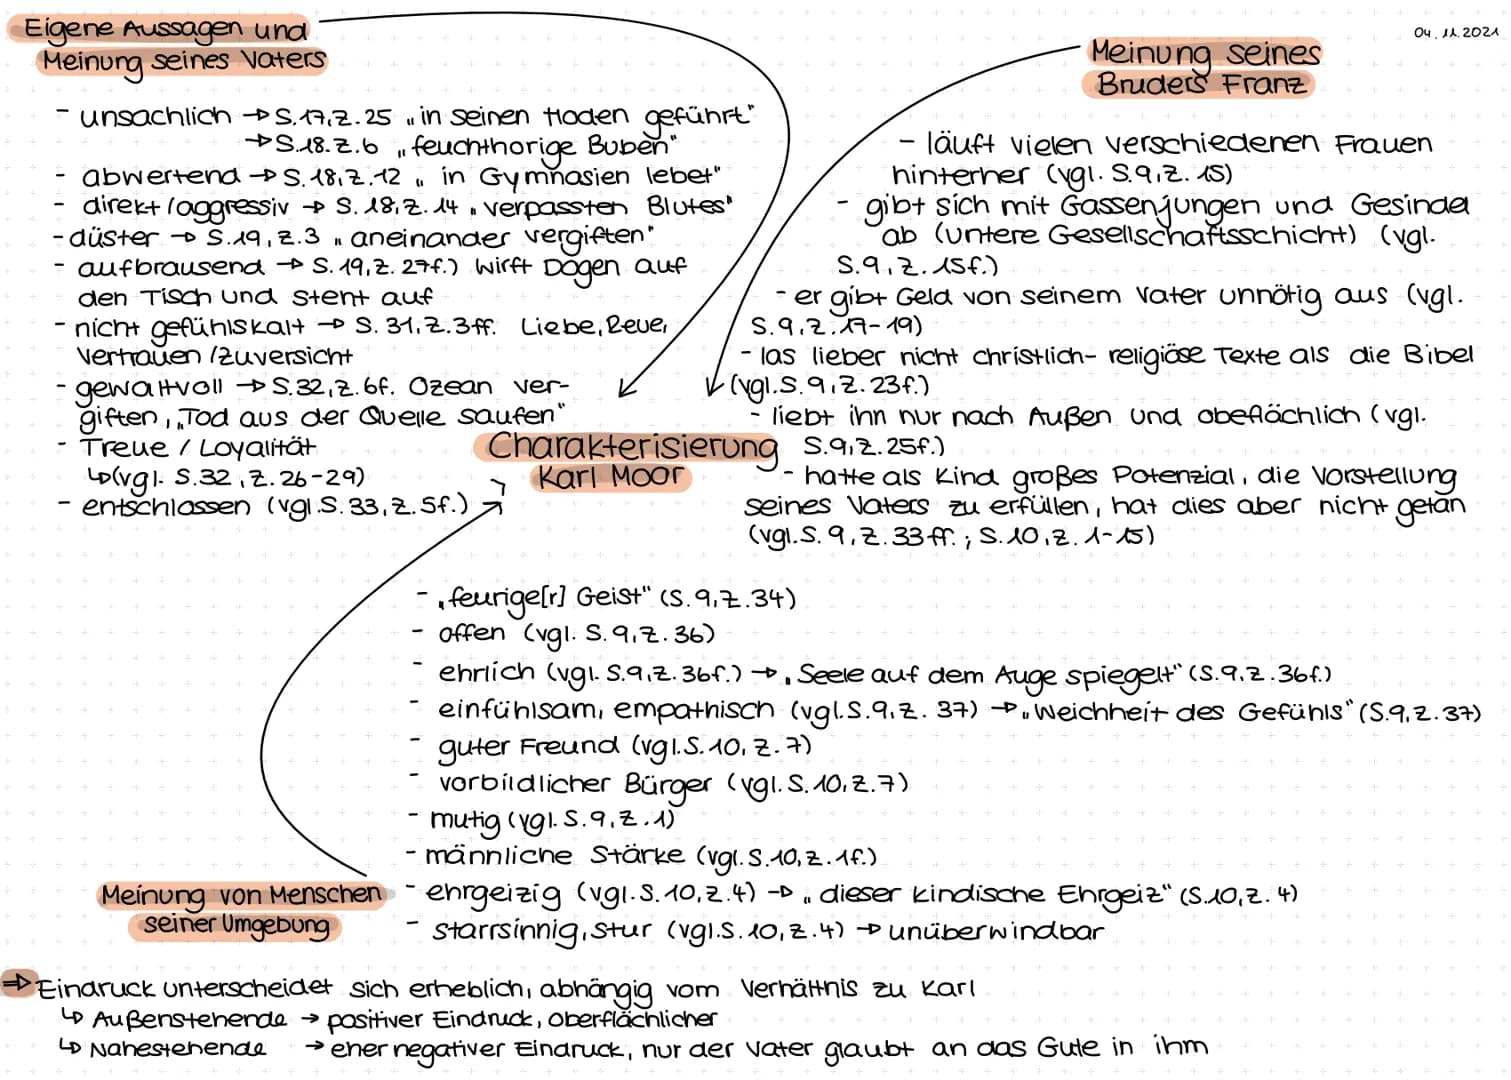 Eigene Aussagen und
Meinung seines Vaters
- unsachlich → S.17, Z.25 „in seinen Hoden geführt"
→ S.18. Z.6 „feuchthorige Buben"
- abwertend → S.18, Z.12 „in Gymnasien lebet"
- direkt/aggressiv → S.18, Z.14 „verpassten Blutes"
- düster → S.19, Z.3 „aneinander vergiften"
- aufbrausend → S.19, Z.27f.) wirft Dogen auf
den Tisch und steht auf
- nicht gefühlskalt → S.31, Z.3ff. Liebe, Reue,
Vertrauen /Zuversicht
- gewaltvoll → S.32, Z.6f. Ozean ver-
giften, „Tod aus der Quelle saufen"
- Treue / Loyalität
↳ (vgl. S.32, Z.26-29)
- entschlossen (vgl. S.33, Z.5f.)
04.11.2021
Meinung seines
Bruders Franz
- läuft vielen verschiedenen Frauen
hinterher (vgl. S.9, Z.15)
- gibt sich mit Gassenjungen und Gesindel
ab (untere Gesellschaftsschicht) (vgl.
S.9, Z.15f.)
- er gibt Geld von seinem Vater unnötig aus (vgl.
S.9, Z.17-19)
- las lieber nicht christlich-religiöse Texte als die Bibel
(vgl. S.9, Z.23f.)
- liebt ihn nur nach Außen und obeflächlich (vgl.
S.9, Z.25f.)
- hatte als Kind großes Potenzial, die Vorstellung
seines Vaters zu erfüllen, hat dies aber nicht getan
(vgl. S.9, Z.33ff.; S.10, Z.1-15)
Charakterisierung
Karl Moor
- „feurige[r] Geist" (S.9, Z.34)
- offen (vgl. S.9, Z.36)
- ehrlich (vgl. S.9, Z.36f.) → „Seele auf dem Auge spiegelt" (S.9, Z.36f.)
- einfühlsam, empathisch (vgl. S.9, Z.37) → „Weichheit des Gefühls" (S.9, Z.37)
- guter Freund (vgl. S.10, Z.7)
- vorbildlicher Bürger (vgl. S.10, Z.7)
- mutig (vgl. S.9, Z.1)
- männliche Stärke (vgl. S.10, Z.1f.)
- ehrgeizig (vgl. S.10, Z.4) → „dieser kindische Ehrgeiz" (S.10, Z.4)
- starrsinnig, stur (vgl. S.10, Z.4) → unüberwindbar
Meinung von Menschen
seiner Umgebung
⇒ Eindruck unterscheidet sich erheblich, abhängig vom Verhältnis zu Karl
↳ Außenstehende → positiver Eindruck, oberflächlicher
↳ Nahestehende → eher negativer Eindruck, nur der Vater glaubt an das Gute in ihm